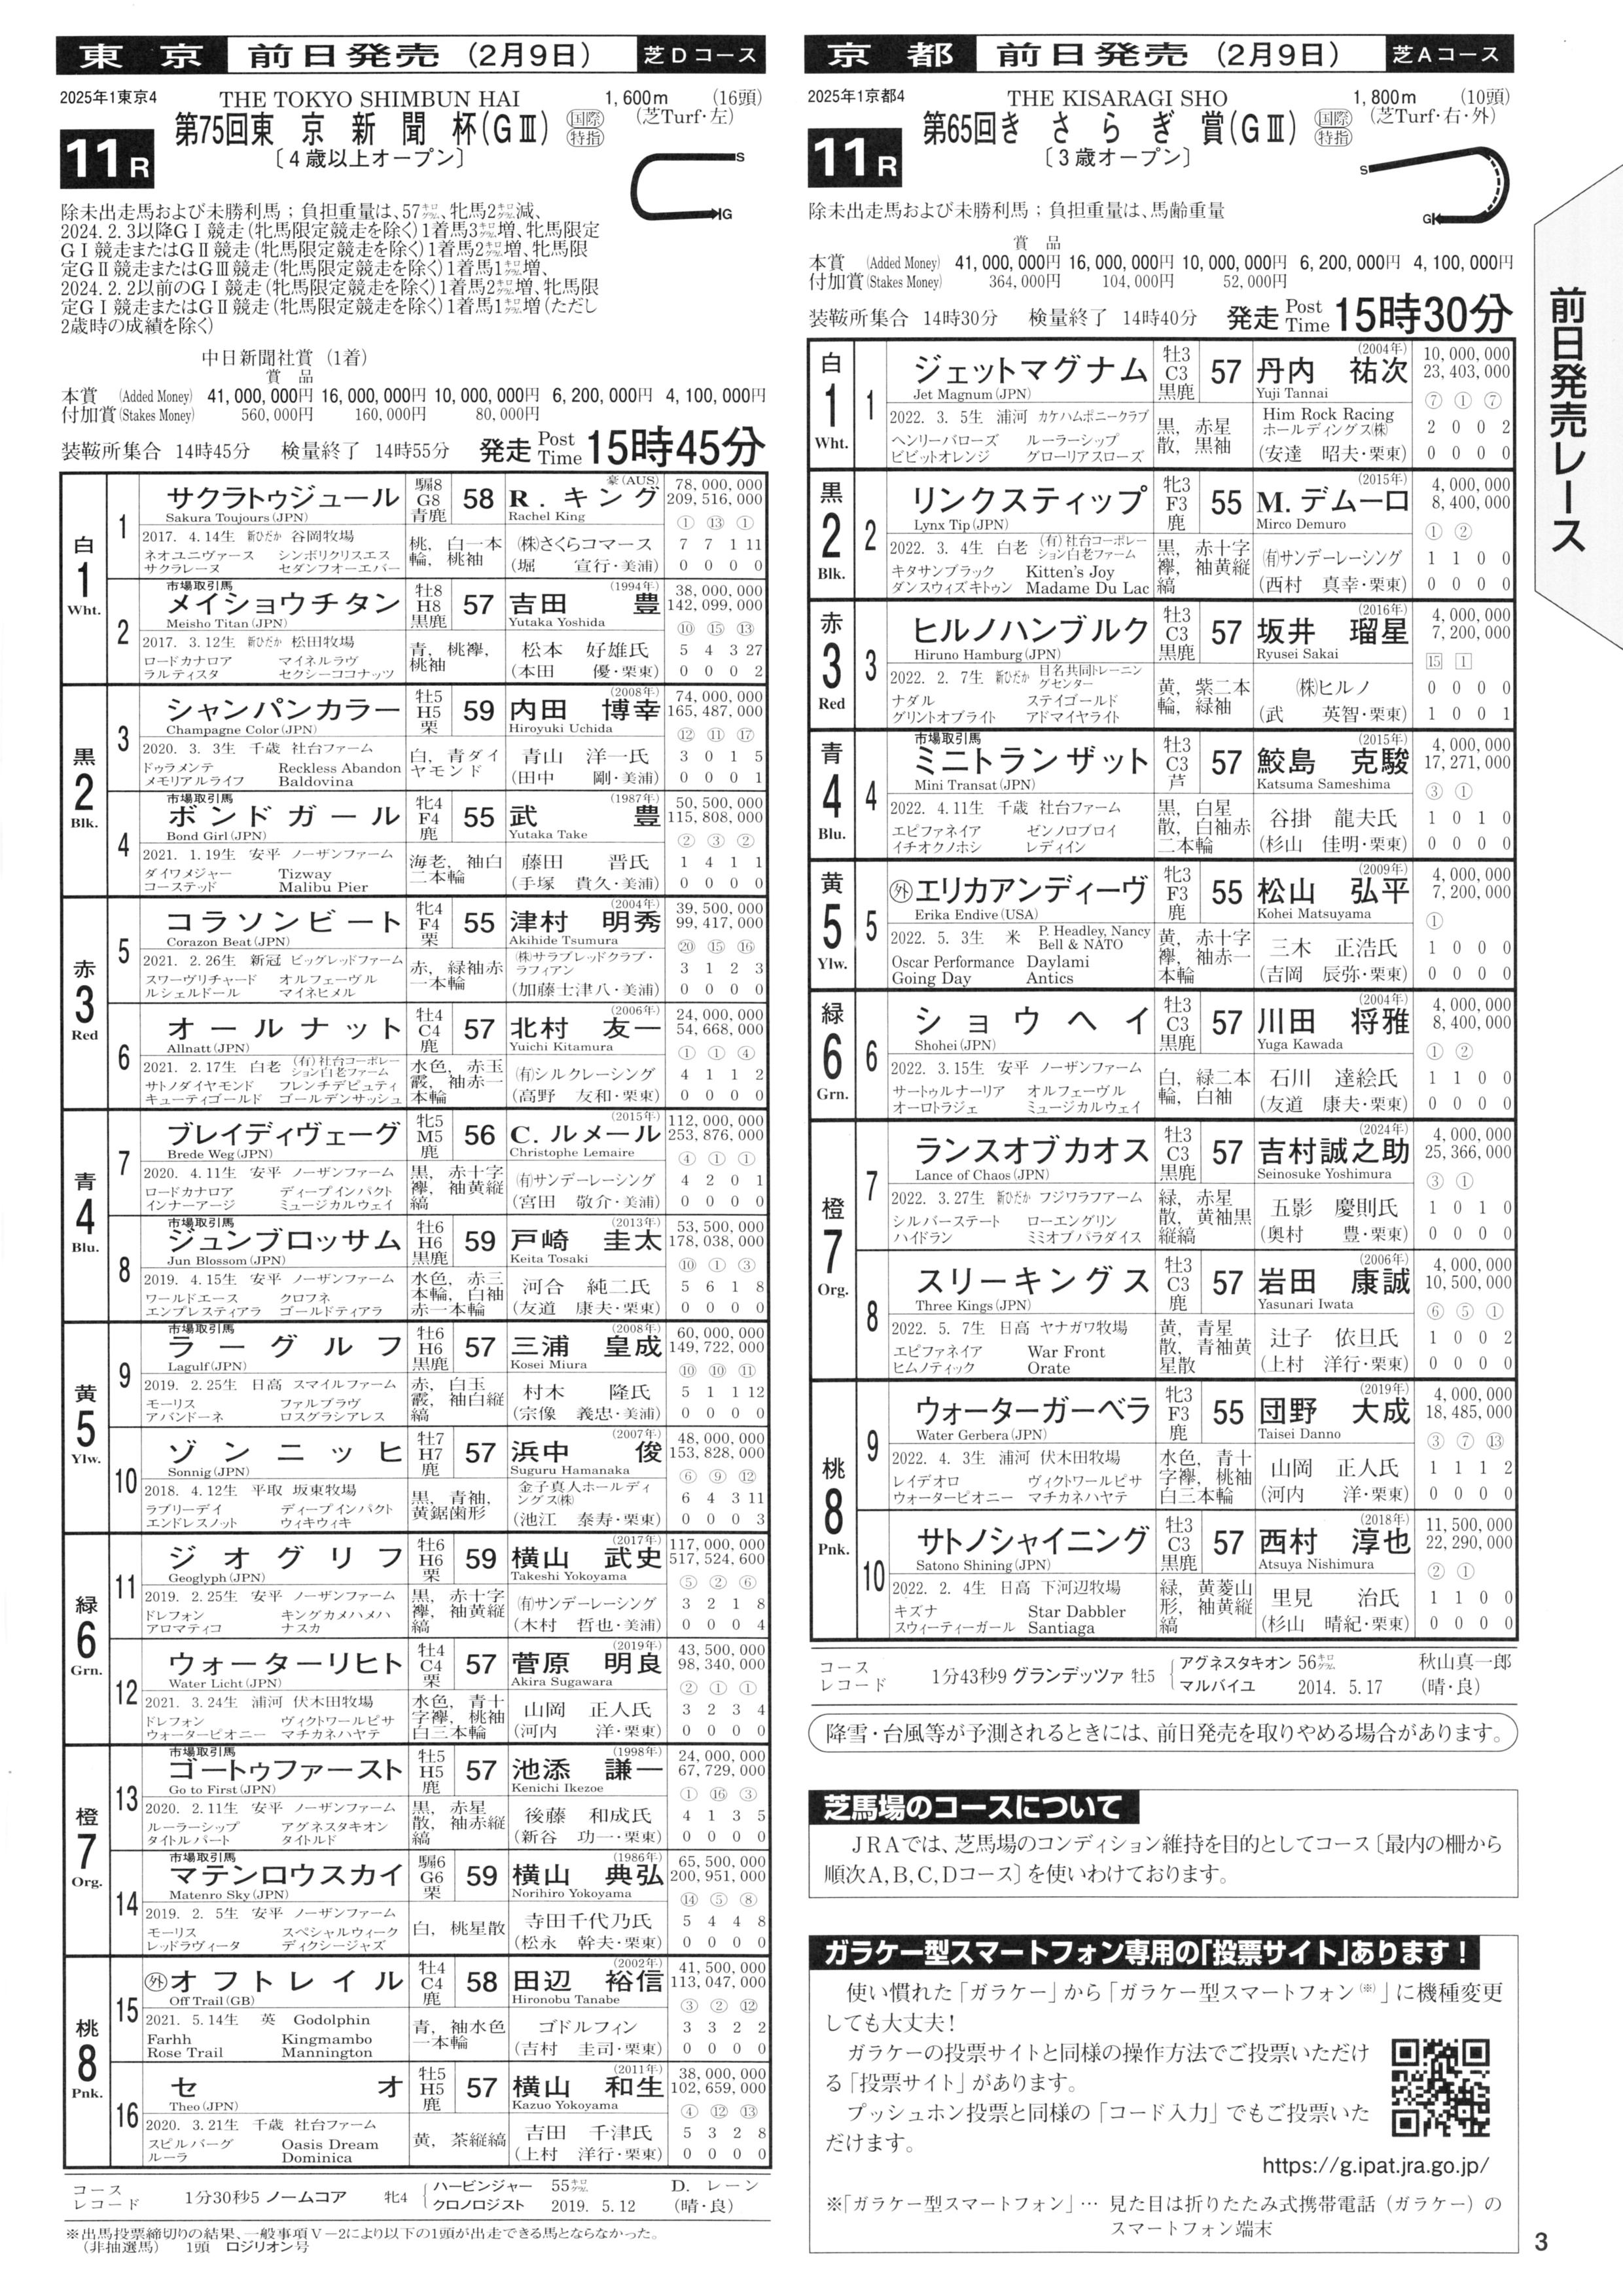 東京 前日発売（2月9日） 芝Dコース
2025年1東京4 THE TOKYO SHIMBUN HAI 1,600m (16頭)
11R 第75回東京新聞杯(GⅢ) 国際 特指 (芝Turf・左)
〔4歳以上オープン〕
除未出走馬および未勝利馬；負担重量は、57キログラム、牝馬2キログラム減、
2024.2.3以降GⅠ競走(牝馬限定競走を除く)1着馬3キログラム増、牝馬限定
GⅠ競走またはGⅡ競走(牝馬限定競走を除く)1着馬2キログラム増、牝馬限
定GⅡ競走またはGⅢ競走(牝馬限定競走を除く)1着馬1キログラム増、
2024.2.2以前のGⅠ競走(牝馬限定競走を除く)1着馬2キログラム増、牝馬限
定GⅠ競走またはGⅡ競走(牝馬限定競走を除く)1着馬1キログラム増(ただし
2歳時の成績を除く)
中日新聞社賞（1着）
賞品
本賞 (Added Money) 41,000,000円 16,000,000円 10,000,000円 6,200,000円 4,100,000円
付加賞(Stakes Money) 560,000円 160,000円 80,000円
装鞍所集合 14時45分 検量終了 14時55分 発走 Post Time 15時45分
白 1 Wht.
1 サクラトゥジュール 騸8 G8 青鹿 58 R．キング 豪(AUS) 78,000,000
Sakura Toujours(JPN) Rachel King 209,516,000
① ⑬ ①
2017. 4.14生 新ひだか 谷岡牧場 桃，白一本輪，桃袖 ㈱さくらコマース 7 7 1 11
ネオユニヴァース シンボリクリスエス
サクラレーヌ セダンフオーエバー (堀 宣行・美浦) 0 0 0 0
市場取引馬
2 メイショウチタン 牡8 H8 黒鹿 57 吉田 豊 (1994年) 38,000,000
Meisho Titan(JPN) Yutaka Yoshida 142,099,000
⑩ ⑮ ⑬
2017. 3.12生 新ひだか 松田牧場 青，桃襷，桃袖 松本 好雄氏 5 4 3 27
ロードカナロア マイネルラヴ
ラルティスタ セクシーココナッツ (本田 優・栗東) 0 0 0 2
黒 2 Blk.
3 シャンパンカラー 牡5 H5 栗 59 内田 博幸 (2008年) 74,000,000
Champagne Color(JPN) Hiroyuki Uchida 165,487,000
⑫ ⑪ ⑰
2020. 3. 3生 千歳 社台ファーム 白，青ダイヤモンド 青山 洋一氏 3 0 1 5
ドゥラメンテ Reckless Abandon
メモリアルライフ Baldovina (田中 剛・美浦) 0 0 0 1
市場取引馬
4 ボンドガール 牝4 F4 鹿 55 武 豊 (1987年) 50,500,000
Bond Girl(JPN) Yutaka Take 115,808,000
② ③ ②
2021. 1.19生 安平 ノーザンファーム 海老，袖白二本輪 藤田 晋氏 1 4 1 1
ダイワメジャー Tizway
コーステッド Malibu Pier (手塚 貴久・美浦) 0 0 0 0
赤 3 Red
5 コラソンビート 牝4 F4 栗 55 津村 明秀 (2004年) 39,500,000
Corazon Beat(JPN) Akihide Tsumura 99,417,000
⑳ ⑮ ⑯
2021. 2.26生 新冠 ビッグレッドファーム 赤，緑袖赤一本輪 ㈱サラブレッドクラブ・ラフィアン 3 1 2 3
スワーヴリチャード オルフェーヴル
ルシェルドール マイネヒメル (加藤士津八・美浦) 0 0 0 0
6 オールナット 牡4 C4 鹿 57 北村 友一 (2006年) 24,000,000
Allnatt(JPN) Yuichi Kitamura 54,668,000
① ① ④
2021. 2.17生 白老 (有)社台コーポレーション白老ファーム 水色，赤玉霰，袖赤一本輪 ㈲シルクレーシング 4 1 1 2
サトノダイヤモンド フレンチデピュティ
キューティゴールド ゴールデンサッシュ (高野 友和・栗東) 0 0 0 0
青 4 Blu.
7 ブレイディヴェーグ 牝5 M5 鹿 56 C．ルメール (2015年) 112,000,000
Brede Weg(JPN) Christophe Lemaire 253,876,000
④ ① ①
2020. 4.11生 安平 ノーザンファーム 黒，赤十字襷，袖黄縦縞 ㈲サンデーレーシング 4 2 0 1
ロードカナロア ディープインパクト
インナーアージ ミュージカルウェイ (宮田 敬介・美浦) 0 0 0 0
市場取引馬
8 ジュンブロッサム 牡6 H6 黒鹿 59 戸崎 圭太 (2013年) 53,500,000
Jun Blossom(JPN) Keita Tosaki 178,038,000
⑩ ① ③
2019. 4.15生 安平 ノーザンファーム 水色，赤三本輪，白袖赤一本輪 河合 純二氏 5 6 1 8
ワールドエース クロフネ
エンプレスティアラ ゴールドティアラ (友道 康夫・栗東) 0 0 0 0
黄 5 Ylw.
市場取引馬
9 ラーグルフ 牡6 H6 黒鹿 57 三浦 皇成 (2008年) 60,000,000
Lagulf(JPN) Kosei Miura 149,722,000
⑩ ⑩ ⑪
2019. 2.25生 日高 スマイルファーム 赤，白玉霰，袖白縦縞 村木 隆氏 5 1 1 12
モーリス ファルブラヴ
アバンドーネ ロスグラシアレス (宗像 義忠・美浦) 0 0 0 0
10 ゾンニッヒ 牡7 H7 鹿 57 浜中 俊 (2007年) 48,000,000
Sonnig(JPN) Suguru Hamanaka 153,828,000
⑥ ⑨ ⑫
2018. 4.12生 平取 坂東牧場 黒，青袖，黄鋸歯形 金子真人ホールディングス㈱ 6 4 3 11
ラブリーデイ ディープインパクト
エンドレスノット ウィキウィキ (池江 泰寿・栗東) 0 0 0 3
緑 6 Grn.
11 ジオグリフ 牡6 H6 栗 59 横山 武史 (2017年) 117,000,000
Geoglyph(JPN) Takeshi Yokoyama 517,524,600
⑤ ② ⑥
2019. 2.25生 安平 ノーザンファーム 黒，赤十字襷，袖黄縦縞 ㈲サンデーレーシング 3 2 1 8
ドレフォン キングカメハメハ
アロマティコ ナスカ (木村 哲也・美浦) 0 0 0 4
12 ウォーターリヒト 牡4 C4 栗 57 菅原 明良 (2019年) 43,500,000
Water Licht(JPN) Akira Sugawara 98,340,000
② ① ①
2021. 3.24生 浦河 伏木田牧場 水色，青十字襷，桃袖白三本輪 山岡 正人氏 3 2 3 4
ドレフォン ヴィクトワールピサ
ウォーターピオニー マチカネハヤテ (河内 洋・栗東) 0 0 0 0
橙 7 Org.
市場取引馬
13 ゴートゥファースト 牡5 H5 鹿 57 池添 謙一 (1998年) 24,000,000
Go to First(JPN) Kenichi Ikezoe 67,729,000
① ⑯ ③
2020. 2.11生 安平 ノーザンファーム 黒，赤星散，袖赤縦縞 後藤 和成氏 4 1 3 5
ルーラーシップ アグネスタキオン
タイトルパート タイトルド (新谷 功一・栗東) 0 0 0 0
市場取引馬
14 マテンロウスカイ 騸6 G6 栗 59 横山 典弘 (1986年) 65,500,000
Matenro Sky(JPN) Norihiro Yokoyama 200,951,000
⑭ ⑤ ⑧
2019. 2. 5生 安平 ノーザンファーム 白，桃星散 寺田千代乃氏 5 4 4 8
モーリス スペシャルウィーク
レッドラヴィータ ディクシージャズ (松永 幹夫・栗東) 0 0 0 0
桃 8 Pnk.
15 ㊕オフトレイル 牡4 C4 鹿 58 田辺 裕信 (2002年) 41,500,000
Off Trail(GB) Hironobu Tanabe 113,047,000
③ ② ⑫
2021. 5.14生 英 Godolphin 青，袖水色一本輪 ゴドルフィン 3 3 2 2
Farhh Kingmambo
Rose Trail Mannington (吉村 圭司・栗東) 0 0 0 0
16 セオ 牡5 H5 鹿 57 横山 和生 (2011年) 38,000,000
Theo(JPN) Kazuo Yokoyama 102,659,000
④ ⑫ ⑬
2020. 3.21生 千歳 社台ファーム 黄，茶縦縞 吉田 千津氏 5 3 2 8
スピルバーグ Oasis Dream
ルーラ Dominica (上村 洋行・栗東) 0 0 0 0
コースレコード 1分30秒5 ノームコア 牝4 ハービンジャー クロノロジスト 55キログラム 2019. 5.12 D．レーン (晴・良)
※出馬投票締切りの結果、一般事項Ⅴ－2により以下の1頭が出走できる馬とならなかった。
(非抽選馬) 1頭 ロジリオン号
京都 前日発売（2月9日） 芝Aコース
2025年1京都4 THE KISARAGI SHO 1,800m (10頭)
11R 第65回きさらぎ賞(GⅢ) 国際 特指 (芝Turf・右・外)
〔3歳オープン〕
除未出走馬および未勝利馬；負担重量は、馬齢重量
賞品
本賞 (Added Money) 41,000,000円 16,000,000円 10,000,000円 6,200,000円 4,100,000円
付加賞(Stakes Money) 364,000円 104,000円 52,000円
装鞍所集合 14時30分 検量終了 14時40分 発走 Post Time 15時30分
白 1 Wht.
1 ジェットマグナム 牡3 C3 黒鹿 57 丹内 祐次 (2004年) 10,000,000
Jet Magnum(JPN) Yuji Tannai 23,403,000
⑦ ① ⑦
2022. 3. 5生 浦河 カケハムポニークラブ 黒，赤星散，黒袖 Him Rock Racing ホールディングス㈱ 2 0 0 2
ヘンリーバローズ ルーラーシップ
ビビットオレンジ グローリアスローズ (安達 昭夫・栗東) 0 0 0 0
黒 2 Blk.
2 リンクスティップ 牝3 F3 鹿 55 M．デムーロ (2015年) 4,000,000
Lynx Tip(JPN) Mirco Demuro 8,400,000
① ②
2022. 3. 4生 白老 (有)社台コーポレーション白老ファーム 黒，赤十字襷，袖黄縦縞 ㈲サンデーレーシング 1 1 0 0
キタサンブラック Kitten's Joy
ダンスウィズキトゥン Madame Du Lac (西村 真幸・栗東) 0 0 0 0
赤 3 Red
3 ヒルノハンブルク 牡3 C3 黒鹿 57 坂井 瑠星 (2016年) 4,000,000
Hiruno Hamburg(JPN) Ryusei Sakai 7,200,000
15 1
2022. 2. 7生 新ひだか 目名共同トレーニングセンター 黄，紫二本輪，緑袖 ㈱ヒルノ 0 0 0 0
ナダル ステイゴールド
グリントオブライト アドマイヤライト (武 英智・栗東) 1 0 0 1
青 4 Blu.
市場取引馬
4 ミニトランザット 牡3 C3 芦 57 鮫島 克駿 (2015年) 4,000,000
Mini Transat(JPN) Katsuma Sameshima 17,271,000
③ ①
2022. 4.11生 千歳 社台ファーム 黒，白星散，白袖赤二本輪 谷掛 龍夫氏 1 0 1 0
エピファネイア ゼンノロブロイ
イチオクノホシ レディイン (杉山 佳明・栗東) 0 0 0 0
黄 5 Ylw.
5 ㊕エリカアンディーヴ 牝3 F3 鹿 55 松山 弘平 (2009年) 4,000,000
Erika Endive(USA) Kohei Matsuyama 7,200,000
①
2022. 5. 3生 米 P. Headley, Nancy Bell & NATO 黄，赤十字襷，袖赤一本輪 三木 正浩氏 1 0 0 0
Oscar Performance Daylami
Going Day Antics (吉岡 辰弥・栗東) 0 0 0 0
緑 6 Grn.
6 ショウヘイ 牡3 C3 黒鹿 57 川田 将雅 (2004年) 4,000,000
Shohei(JPN) Yuga Kawada 8,400,000
① ②
2022. 3.15生 安平 ノーザンファーム 白，緑二本輪，白袖 石川 達絵氏 1 1 0 0
サートゥルナーリア オルフェーヴル
オーロトラジェ ミュージカルウェイ (友道 康夫・栗東) 0 0 0 0
橙 7 Org.
7 ランスオブカオス 牡3 C3 黒鹿 57 吉村誠之助 (2024年) 4,000,000
Lance of Chaos(JPN) Seinosuke Yoshimura 25,366,000
③ ①
2022. 3.27生 新ひだか フジワラファーム 緑，赤星散，黄袖黒縦縞 五影 慶則氏 1 0 1 0
シルバーステート ローエングリン
ハイドラン ミミオブパラダイス (奥村 豊・栗東) 0 0 0 0
8 スリーキングス 牡3 C3 鹿 57 岩田 康誠 (2006年) 4,000,000
Three Kings(JPN) Yasunari Iwata 10,500,000
⑥ ⑤ ①
2022. 5. 7生 日高 ヤナガワ牧場 黄，青星散，青袖黄星散 辻子 依旦氏 1 0 0 2
エピファネイア War Front
ヒムノティック Orate (上村 洋行・栗東) 0 0 0 0
桃 8 Pnk.
9 ウォーターガーベラ 牝3 F3 鹿 55 団野 大成 (2019年) 4,000,000
Water Gerbera(JPN) Taisei Danno 18,485,000
③ ⑦ ⑬
2022. 4. 3生 浦河 伏木田牧場 水色，青十字襷，桃袖白三本輪 山岡 正人氏 1 1 1 2
レイデオロ ヴィクトワールピサ
ウォーターピオニー マチカネハヤテ (河内 洋・栗東) 0 0 0 0
10 サトノシャイニング 牡3 C3 黒鹿 57 西村 淳也 (2018年) 11,500,000
Satono Shining(JPN) Atsuya Nishimura 22,290,000
② ①
2022. 2. 4生 日高 下河辺牧場 緑，黄菱山形，袖黄縦縞 里見 治氏 1 1 0 0
キズナ Star Dabbler
スウィーティーガール Santiaga (杉山 晴紀・栗東) 0 0 0 0
コースレコード 1分43秒9 グランデッツァ 牡5 アグネスタキオン マルバイユ 56キログラム 2014. 5.17 秋山真一郎 (晴・良)
降雪・台風等が予測されるときには、前日発売を取りやめる場合があります。
芝馬場のコースについて
JRAでは、芝馬場のコンディション維持を目的としてコース〔最内の柵から
順次A,B,C,Dコース〕を使いわけております。
ガラケー型スマートフォン専用の「投票サイト」あります！
使い慣れた「ガラケー」から「ガラケー型スマートフォン(※)」に機種変更
しても大丈夫！
ガラケーの投票サイトと同様の操作方法でご投票いただけ
る「投票サイト」があります。
プッシュホン投票と同様の「コード入力」でもご投票いた
だけます。
https://g.ipat.jra.go.jp/
※「ガラケー型スマートフォン」… 見た目は折りたたみ式携帯電話（ガラケー）の
スマートフォン端末
前日発売レース
3